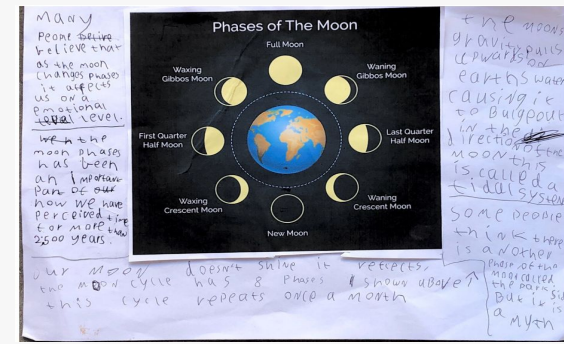 Many
Peone believe
velieve that
as the moon
changes phases
it affects
us on a
emotional
level.
the
moon phases
has been
an important
part of our
how we have
perceived time
for more than
2,500 years.
Phases of The Moon
Full Moon
Waxing
Gibbos Moon
Waning
Gibbos Moon
First Quarter
Half Moon
Last Quarter
Half Moon
Waxing
Crescent Moon
Waning
Crescent Moon
New Moon
the moons
gravity pulls
upwards on
earths water
causing it
to Bulgpout
in the
direction of the
moon this
is called a
tidal system
some people
think there
is another
phase of the
moon called
the dark side
But it is
a myth
our moon doesn't shine it reflects,
the moon cycle has 8 phases (shown above ↑
this cycle repeats once a month